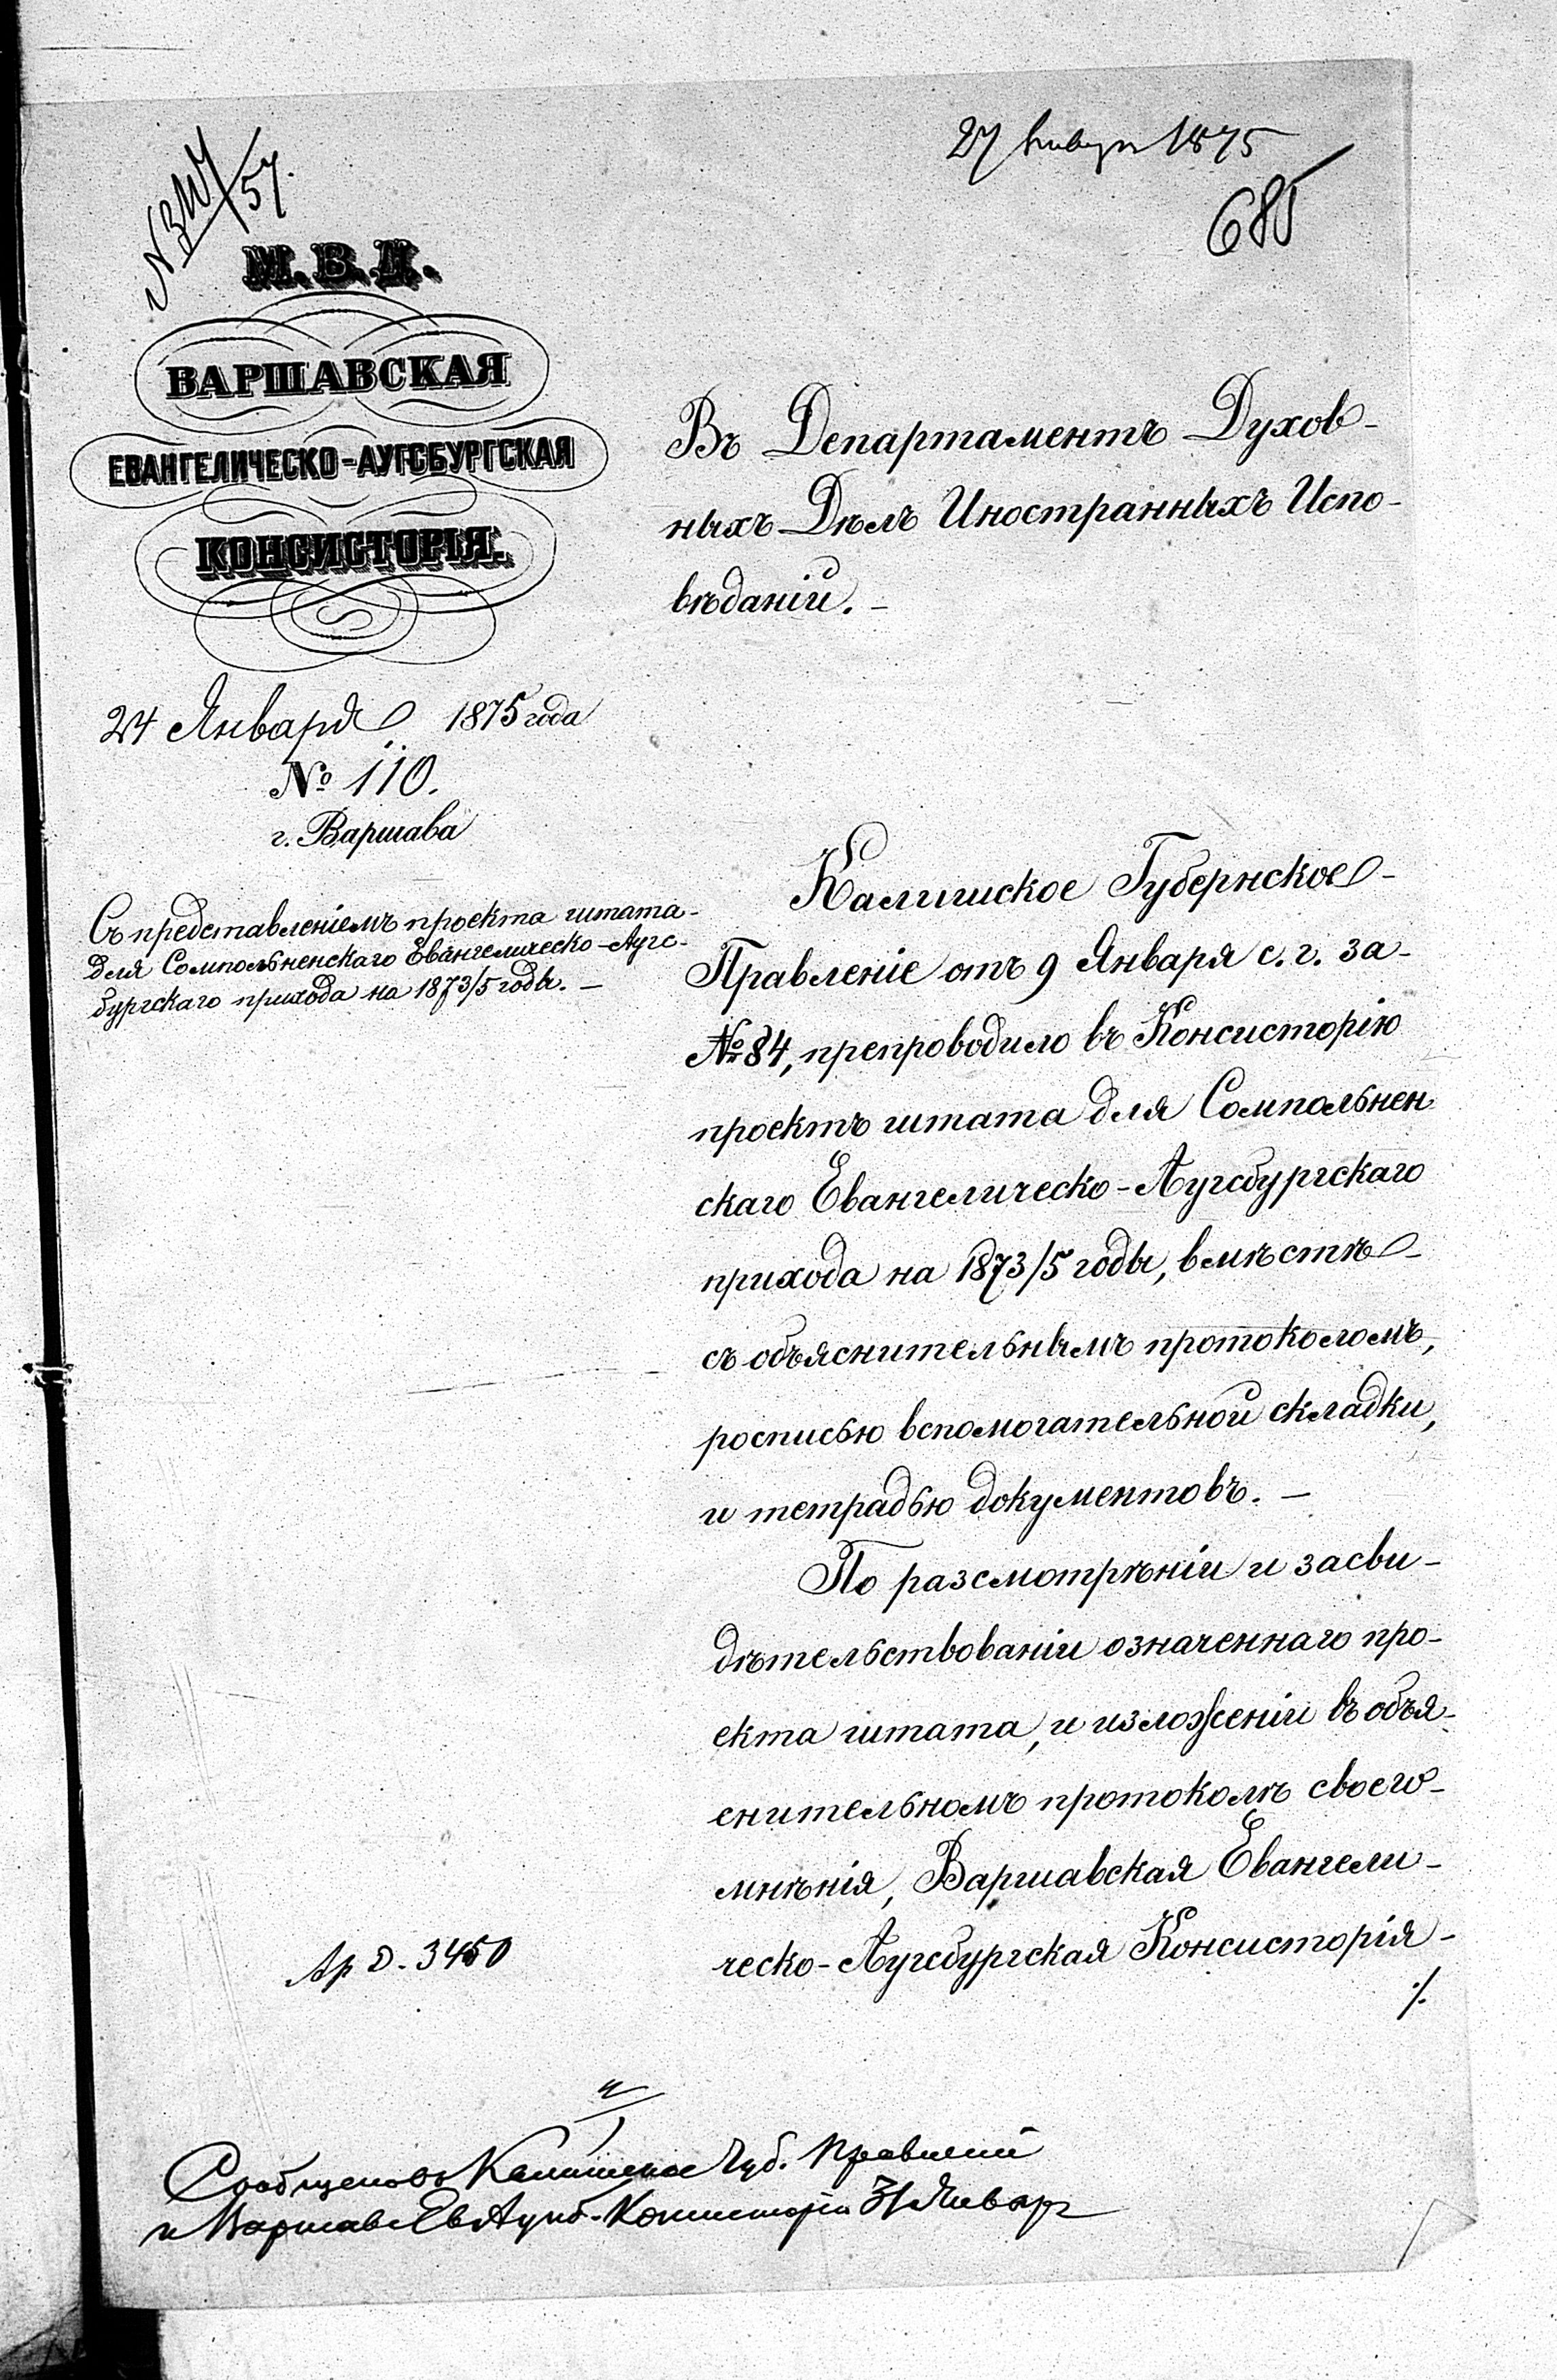 27 Января 1875
685
М.В.Д.
ВАРШАВСКАЯ
ЕВАНГЕЛИЧЕСКО-АУГСБУРГСКАЯ
КОНСИСТОРІЯ.
24 Января 1875 года
№ 110.
г. Варшава
Съ представленіемъ проекта штата
для Сомпольненскаго Евангелическо-Аугс-
бургскаго прихода на 1873/5 годы. —
Въ Департаментъ Духов-
ныхъ Дѣлъ Иностранныхъ Испо-
вѣданій. —
Калишское Губернское
Правленіе отъ 9 Января с. г. за
№ 84, препроводило въ Консисторію
проектъ штата для Сомпольнен
скаго Евангелическо-Аугсбургскаго
прихода на 1873/5 годы, вмѣстѣ
съ объяснительнымъ протоколомъ,
росписью вспомогательной складки,
и тетрадью документовъ. —
По разсмотрѣніи и засви-
дѣтельствованіи означеннаго про-
екта штата, и изложеніи въ объя-
снительномъ протоколѣ своего
мнѣнія, Варшавская Евангели-
ческо-Аугсбургская Консисторія
./.
3450
Сообщено въ Калишское Губ. Правленіе
и Варшавс Ев Аугсб. Консисторіи 31 Январ